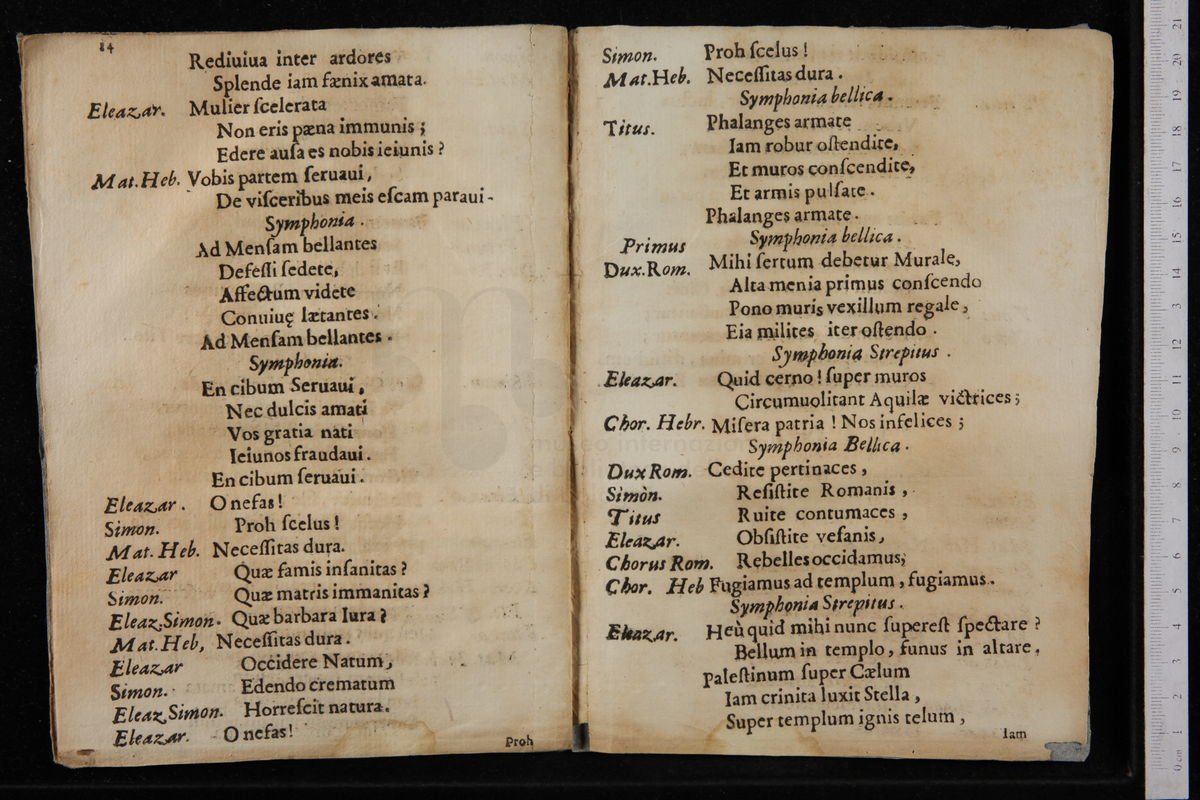 14
Rediuiua inter ardores
Splende iam fænix amata.
Eleazar. Mulier ſcelerata
Non eris pæna immunis ;
Edere auſa es nobis ieiunis ?
Mat. Heb. Vobis partem ſeruaui,
De viſceribus meis eſcam paraui -
Symphonia .
Ad Menſam bellantes
Defeſſi ſedete,
Affectum videte
Conuiuę lætantes .
Ad Menſam bellantes .
Symphonia.
En cibum Seruaui,
Nec dulcis amati
Vos gratia nati
Ieiunos fraudaui .
En cibum ſeruaui .
Eleazar . O nefas !
Simon. Proh ſcelus !
Mat. Heb. Neceſſitas dura.
Eleazar Quæ famis inſanitas ?
Simon. Quæ matris immanitas ?
Eleaz.Simon. Quæ barbara Iura ?
Mat. Heb, Neceſſitas dura .
Eleazar Occidere Natum,
Simon. Edendo crematum
Eleaz.Simon. Horreſcit natura.
Eleazar. O nefas!
Proh
Simon. Proh ſcelus !
Mat. Heb. Neceſſitas dura .
Symphonia bellica .
Titus. Phalanges armate
Iam robur oſtendite,
Et muros conſcendite,
Et armis pulſate .
Phalanges armate .
Symphonia bellica .
Primus
Dux.Rom. Mihi ſertum debetur Murale,
Alta menia primus conſcendo
Pono muris vexillum regale,
Eia milites iter oſtendo .
Symphonia Strepitus .
Eleazar. Quid cerno ! ſuper muros
Circumuolitant Aquilæ victrices ;
Chor. Hebr. Miſera patria ! Nos infelices ;
Symphonia Bellica .
Dux Rom. Cedite pertinaces ,
Simòn. Reſiſtite Romanis ,
Titus Ruite contumaces ,
Eleazar. Obſiſtite veſanis,
Chorus Rom. Rebelles occidamus;
Chor. Heb Fugiamus ad templum , fugiamus .
Symphonia Strepitus .
Eleazar. Heù quid mihi nunc ſupereſt ſpectare ?
Bellum in templo, funus in altare,
Paleſtinum ſuper Cælum
Iam crinita luxit Stella ,
Super templum ignis telum ,
Iam